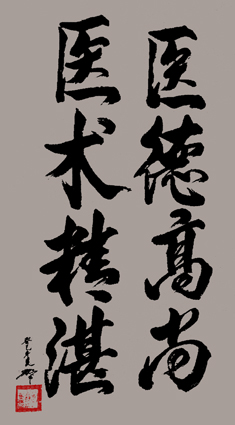 医德高尚
医术精湛